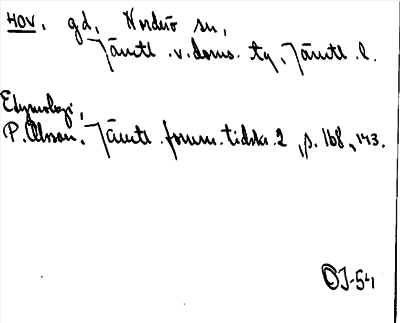 HOV. gd, Norderö sn,
Jämtl. v. doms. tg, Jämtl. l.
Etymologi:
P. Olsson, Jämtl. fornm. tidskr. 2, s. 168, 173.
OJ-54